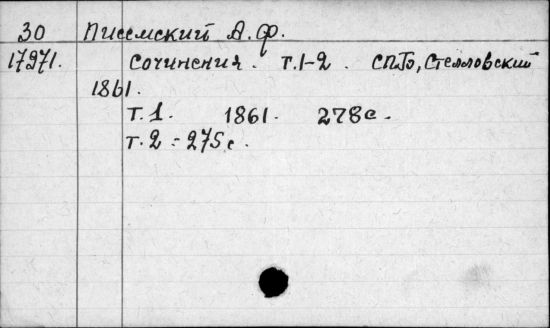 30 Писемский А.Ф.
17971. Сочинения. т.1-2. СПБ, Стелловский
1861.
Т.1. 1861. 278с.
т.2 - 275с.